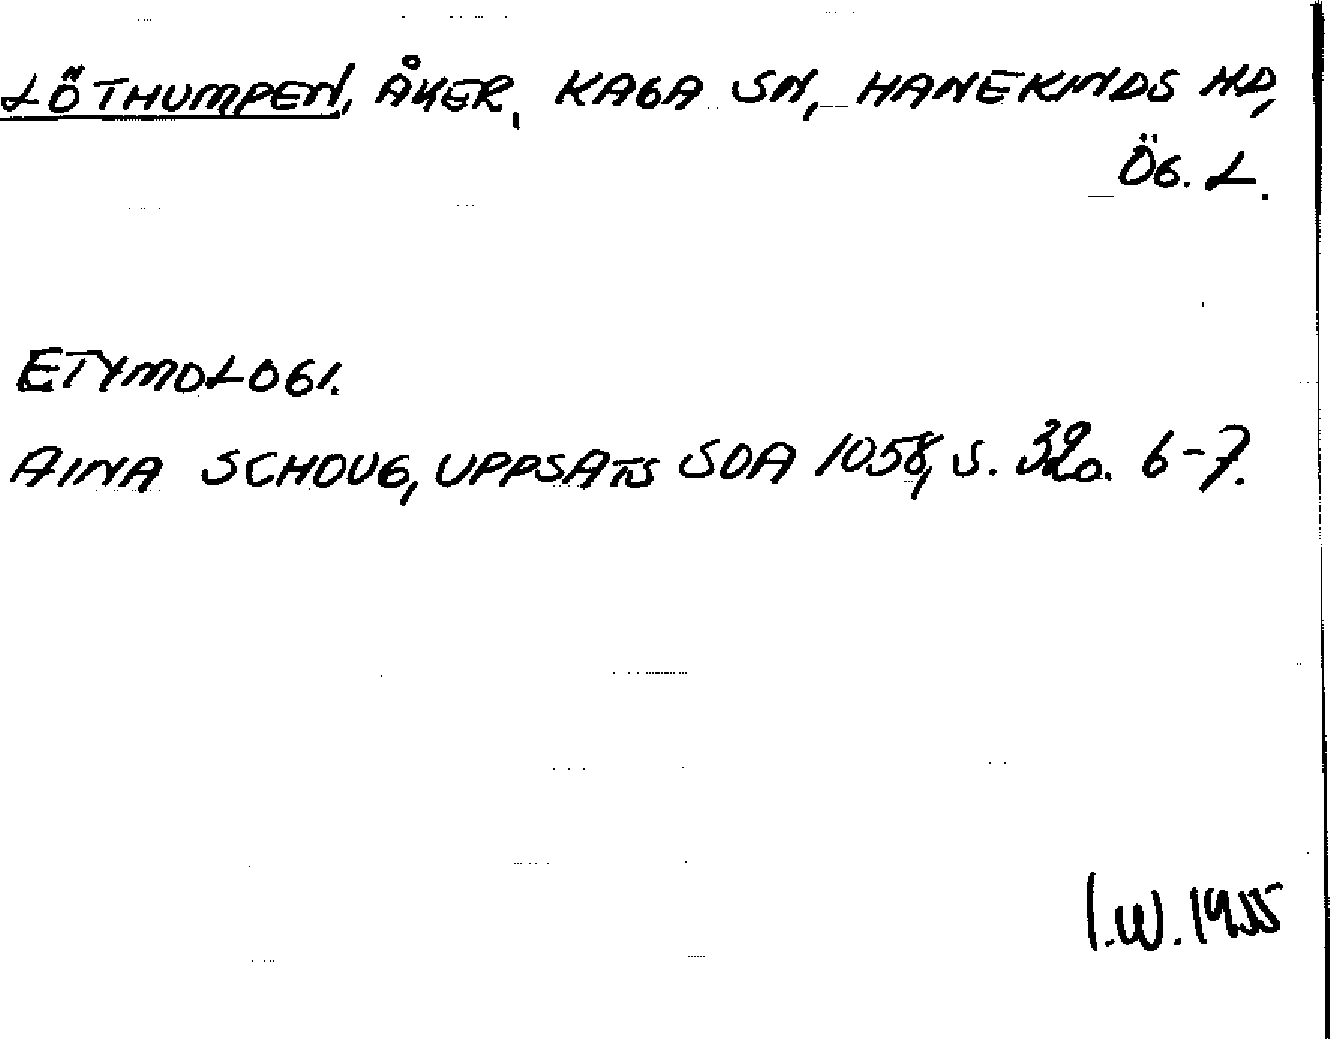 LÖTHUMPEN, ÅKER, KAGA SN, HANEKINDS HD,
ÖG. L.
ETYMOLOGI.
AINA SCHOUG, UPPSATS SOA 1058, S. 32 o. 6-7.
I.W. 1955